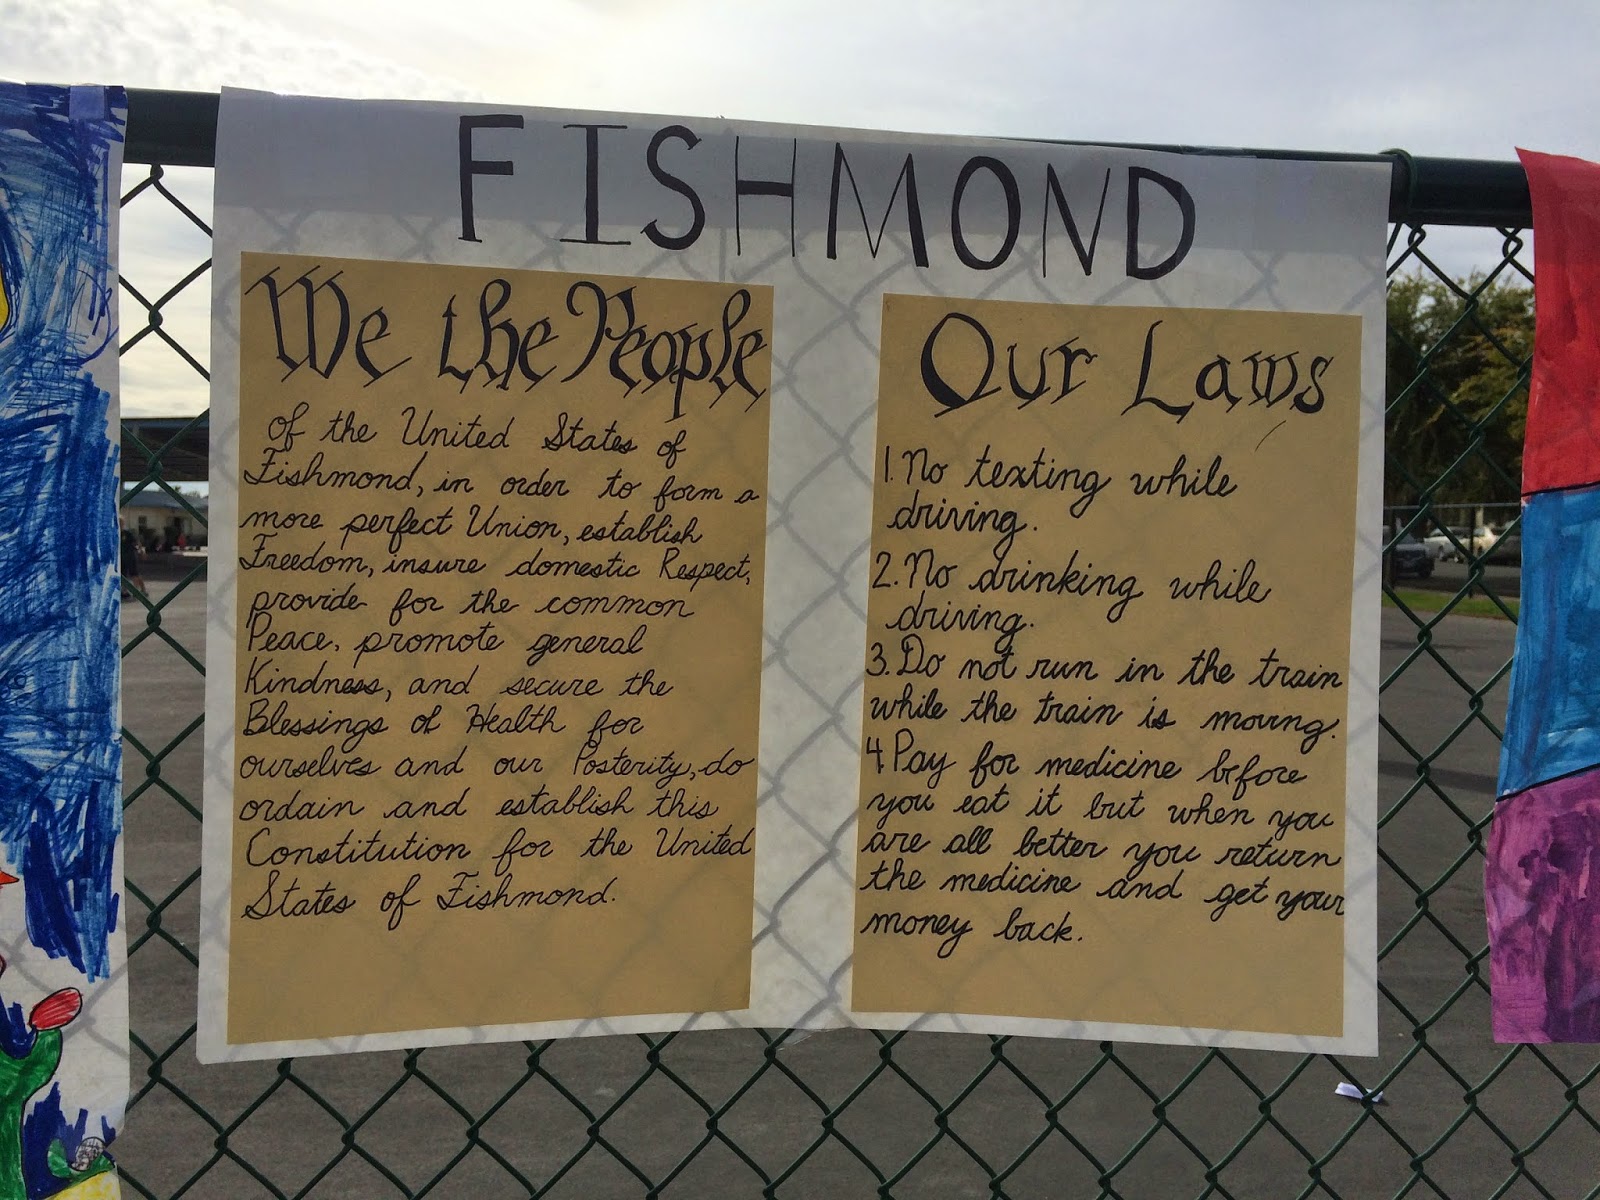 FISHMOND
We the People
of the United States of
Fishmond, in order to form a
more perfect Union, establish
Freedom, insure domestic Respect,
provide for the common
Peace, promote general
Kindness, and secure the
Blessings of Health for
ourselves and our Posterity, do
ordain and establish this
Constitution for the United
States of Fishmond.
Our Laws
1. No texting while
driving.
2. No drinking while
driving.
3. Do not run in the train
while the train is moving.
4 Pay for medicine before
you eat it but when you
are all better you return
the medicine and get your
money back.